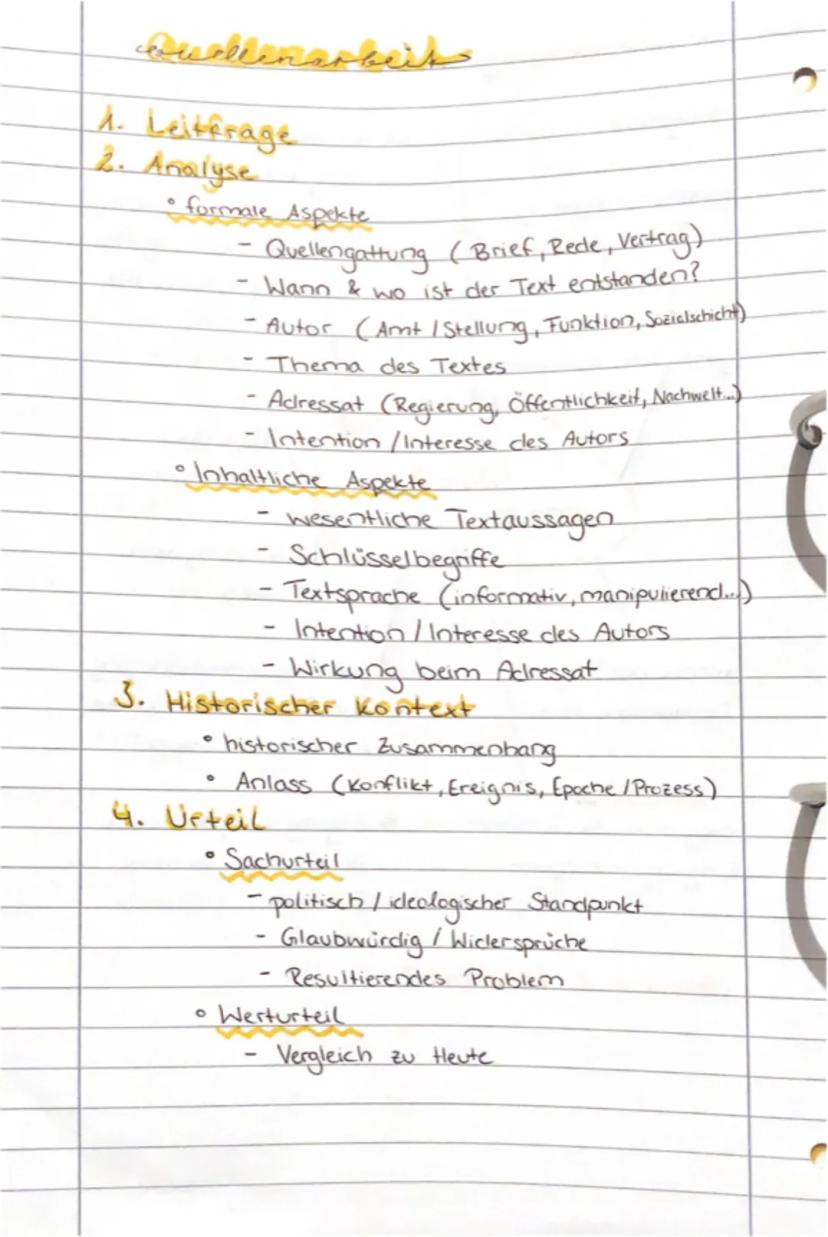 Quellenarbeit
1. Leitfrage
2. Analyse
° formale Aspekte
- Quellengattung (Brief, Rede, Vertrag)
- Wann & wo ist der Text entstanden?
- Autor (Amt / Stellung, Funktion, Sozialschicht)
- Thema des Textes
- Adressat (Regierung, Öffentlichkeit, Nachwelt...)
- Intention / Interesse des Autors
° Inhaltliche Aspekte
- wesentliche Textaussagen
- Schlüsselbegriffe
- Textsprache (informativ, manipulierend...)
- Intention / Interesse des Autors
- Wirkung beim Adressat
3. Historischer Kontext
° historischer Zusammenhang
° Anlass (Konflikt, Ereignis, Epoche / Prozess)
4. Urteil
° Sachurteil
- politisch / ideologischer Standpunkt
- Glaubwürdig / Widersprüche
- Resultierendes Problem
° Werturteil
- Vergleich zu Heute